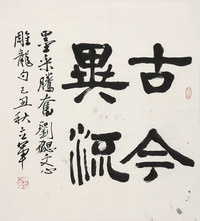 古今
異流
墨采騰奮劉勰文心
雕龍句己丑秋